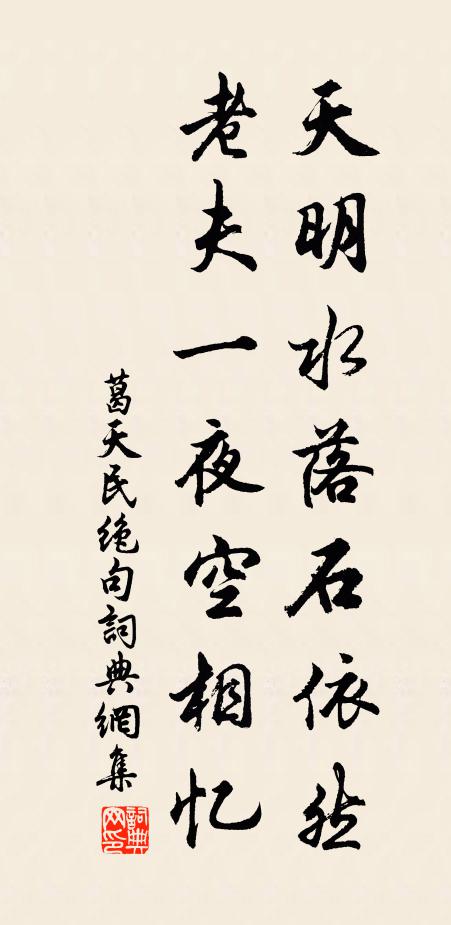 天明水落石依然
老夫一夜空相忆
葛天民绝句詞典網集
詞典网印